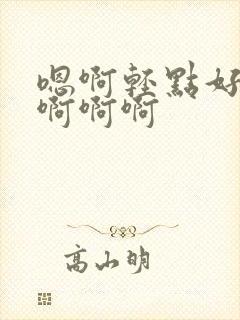 嗯啊輕點好
啊啊啊
高山明